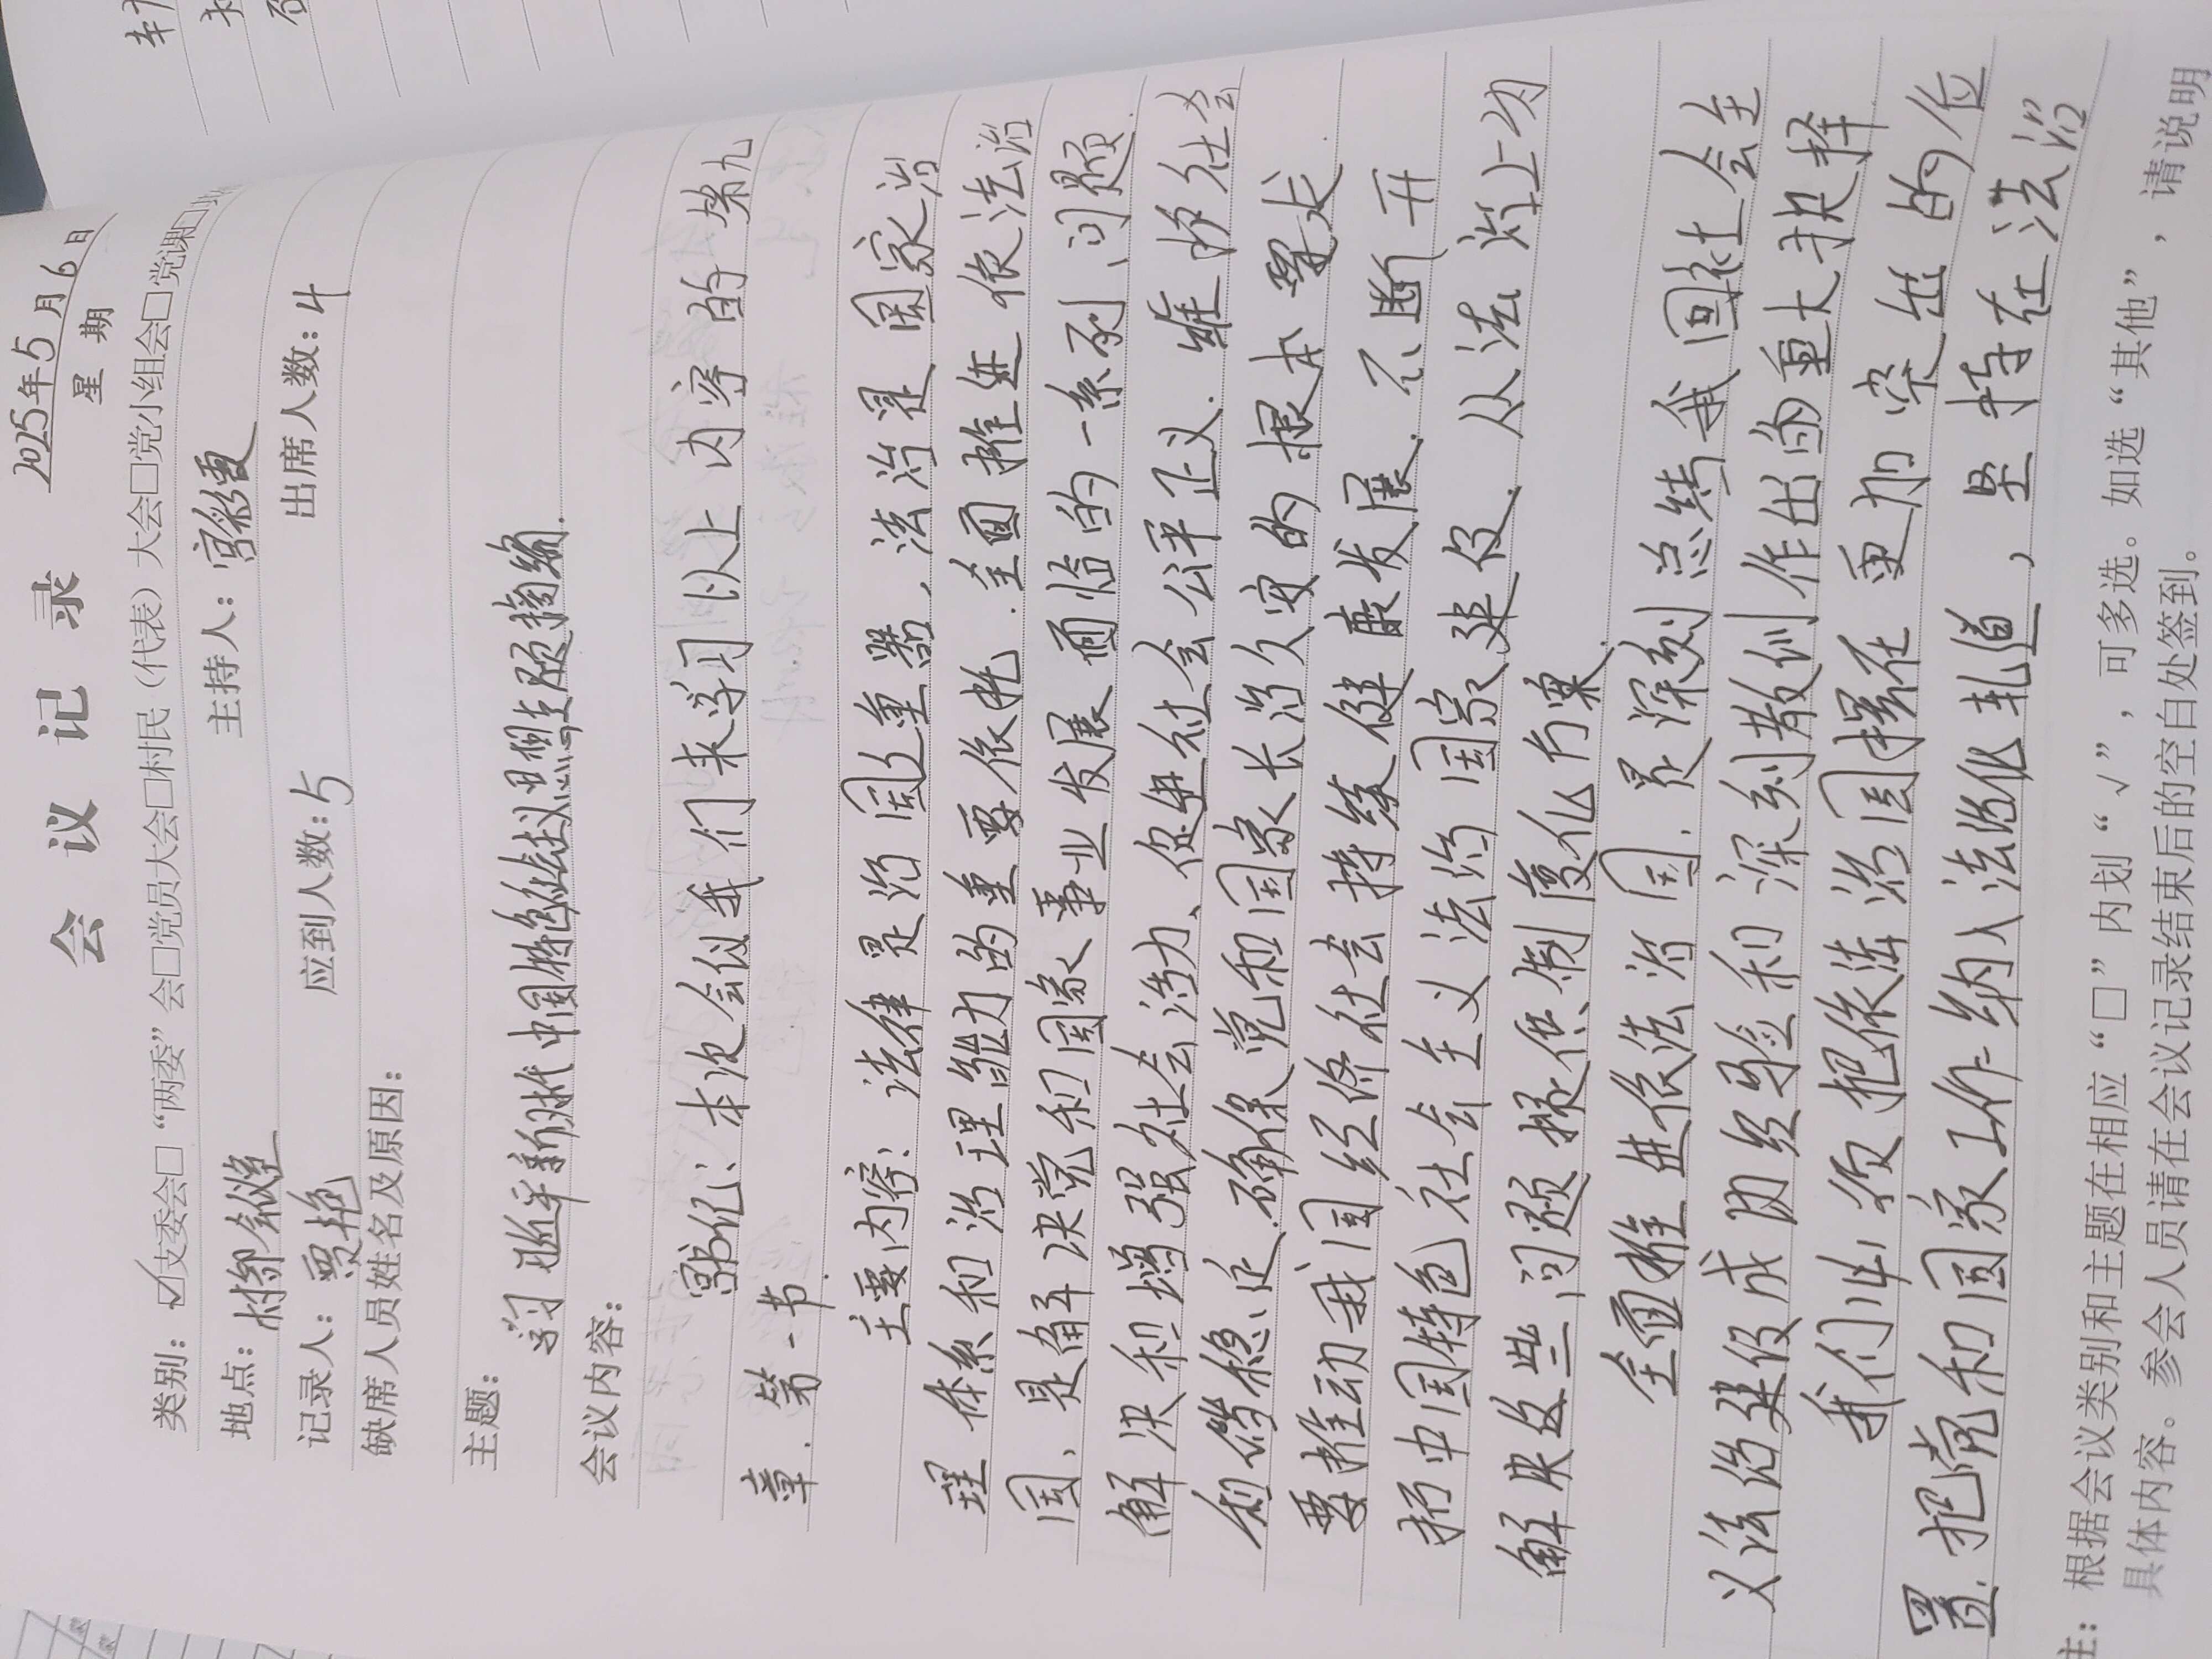 会 议 记 录
2025年5月6日
星 期
类别：☑支委会□“两委”会□党员大会□村民（代表）大会□党小组会□党课□
地点：村部
主持人：宫
记录人：贾艳
应到人数：5
出席人数：4
缺席人员姓名及原因：
主题：
学习 新时代中国特色社会主义思想
会议内容：
宫书记：本次会似我们来学习以上内容的第九
章.第一节.
主要内容：法律是治国之重器，法治是国家治
理体系和治理能力的重要依托.全面推进依法治
国、是解决党和国家事业发展面临的一系列问题.
解决和增强社会活力、促进社会公平正义.维护社会
和谐稳定.确保党和国家长治久安的根本要求.
要推动我国经济社会持续健康发展.不断开
拓中国特色社会主义法治国家建设.从法治上为
解决这些问题提供制度化方案.
全面推进依法治国.是深刻总结我国社会主
义法治建设成功经验和深刻教训作出的重大抉择
我们必须把依法治国摆在更加突出的位
置.把党和国家工作纳入法治化轨道，坚持在法治
注：根据会议类别和主题在相应“□”内划“√”，可多选。如选“其他”，请说明
具体内容。参会人员请在会议记录结束后的空白处签到。